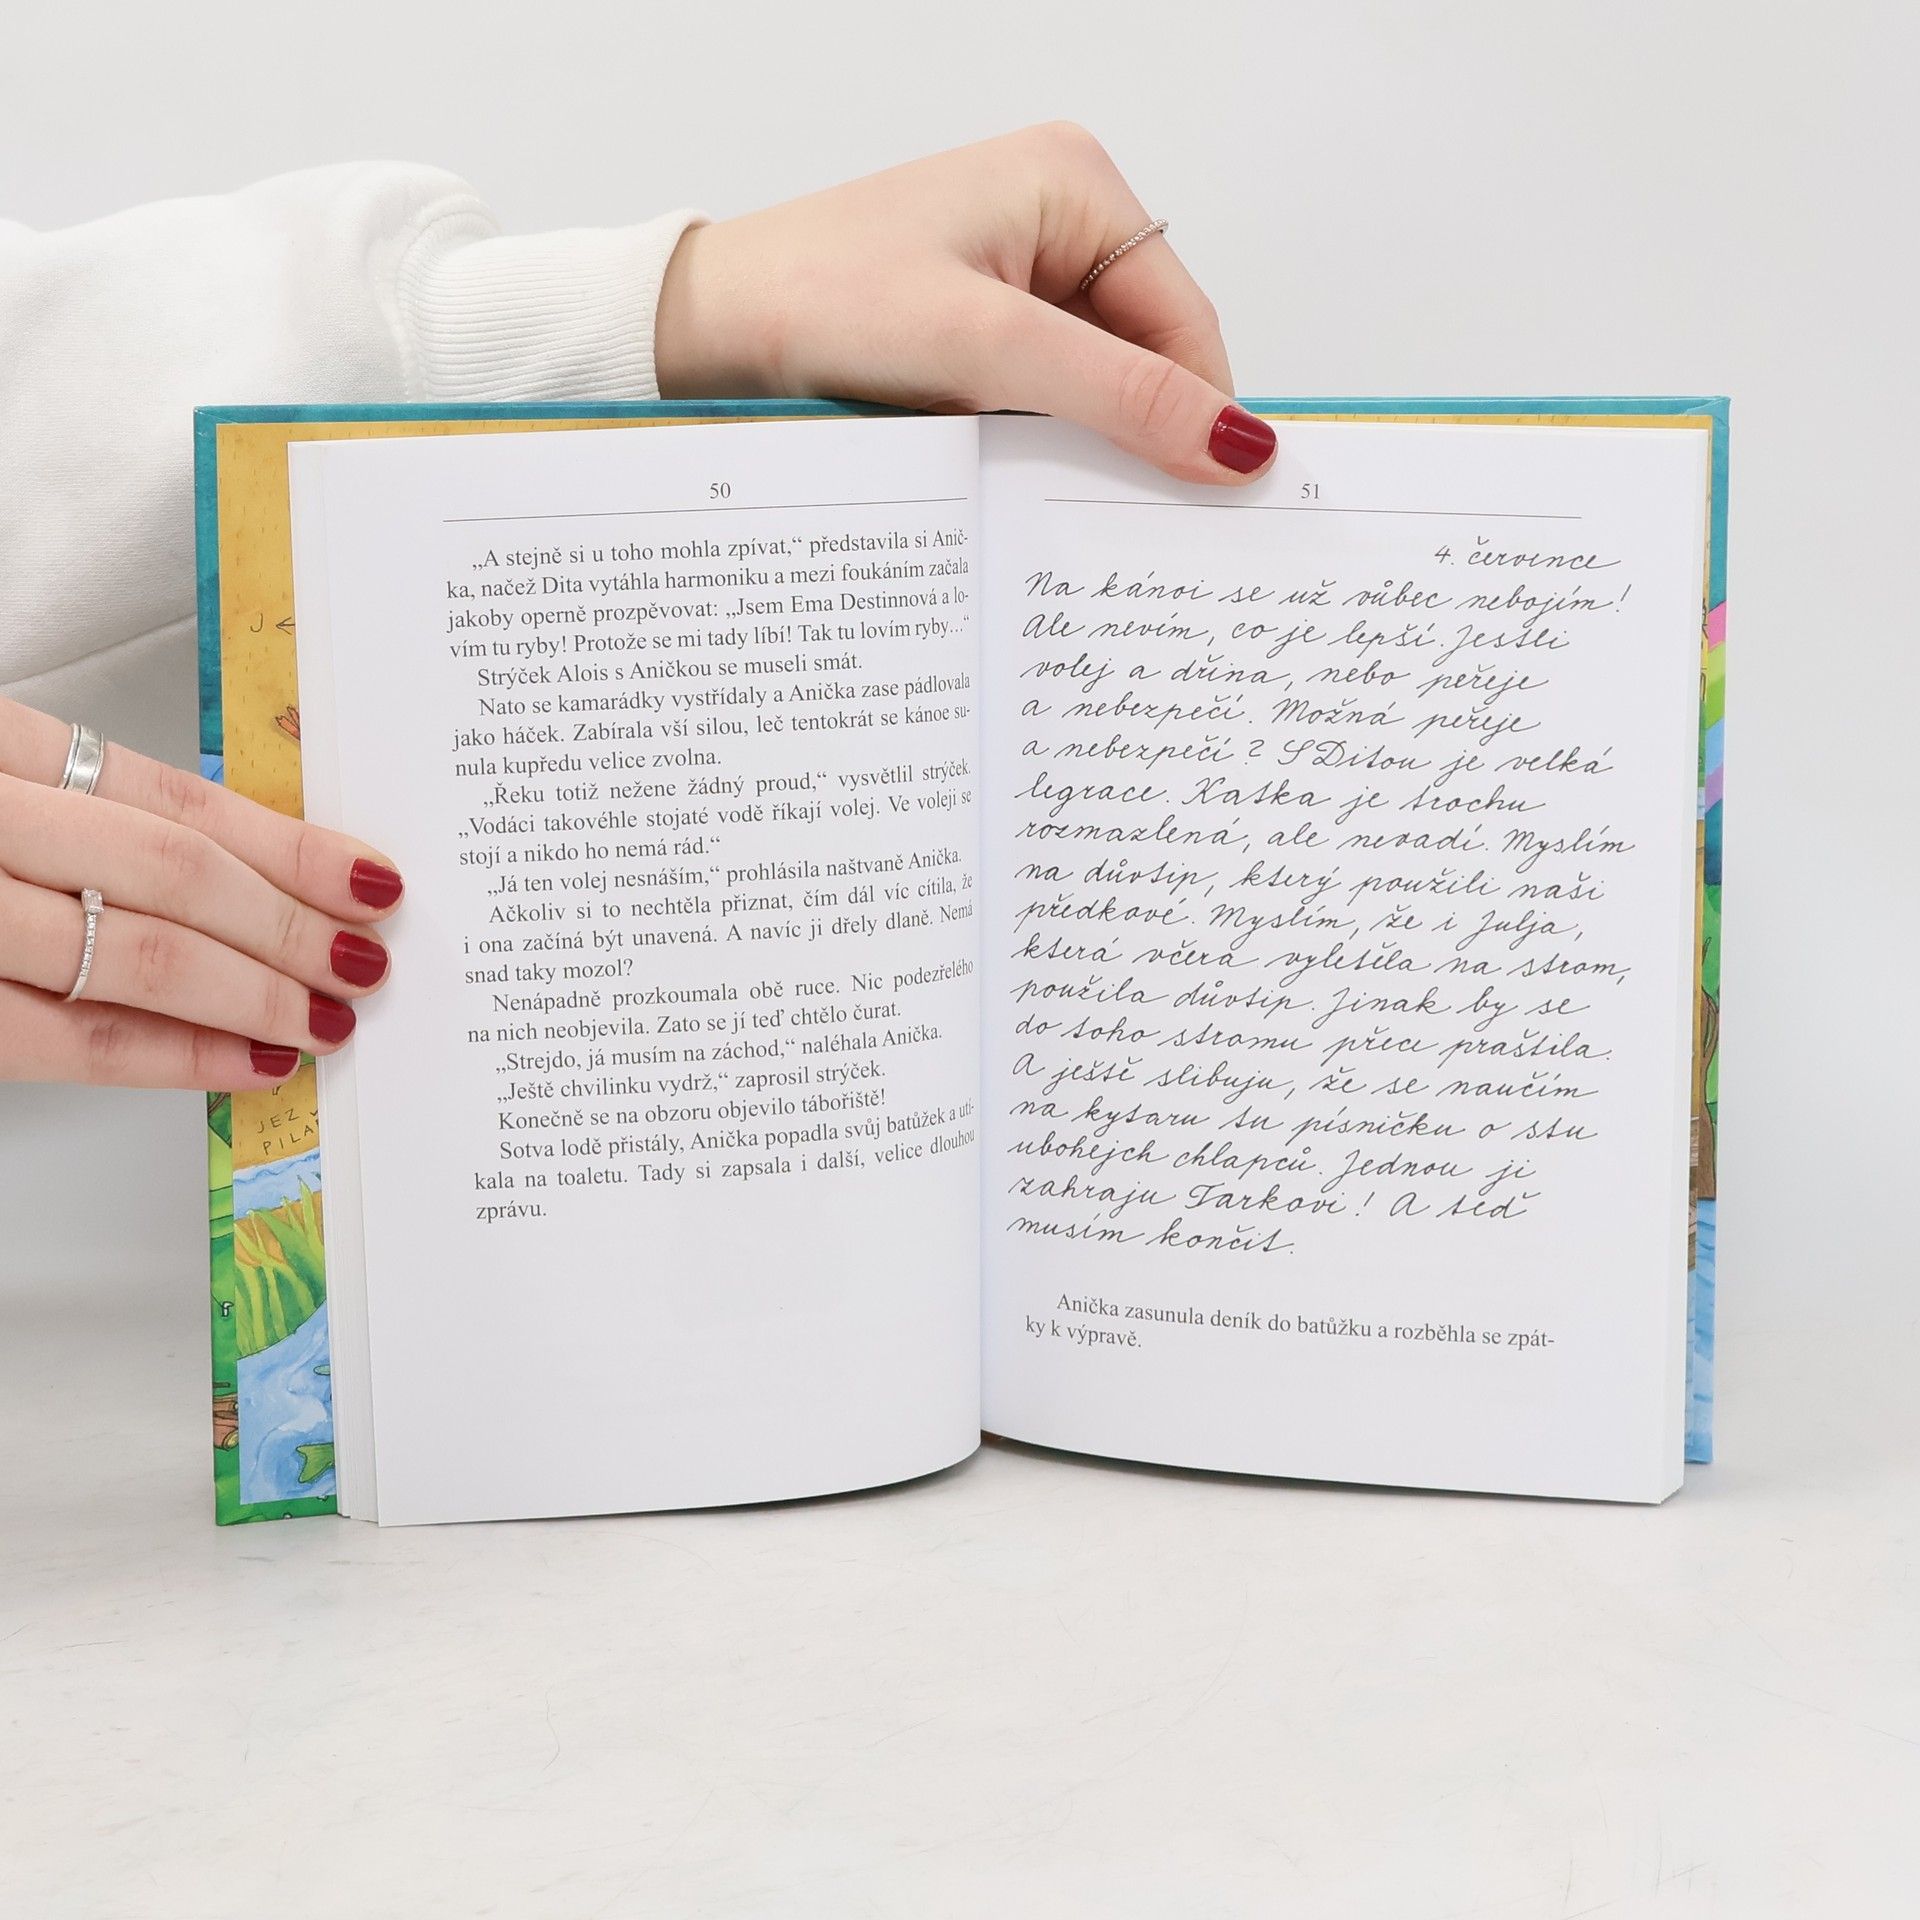 50
„A stejně si u toho mohla zpívat,“ představila si Anič-
ka, načež Dita vytáhla harmoniku a mezi foukáním začala
jakoby operně prozpěvovat: „Jsem Ema Destinnová a lo-
vím tu ryby! Protože se mi tady líbí! Tak tu lovím ryby...“
Strýček Alois s Aničkou se museli smát.
Nato se kamarádky vystřídaly a Anička zase pádlovala
jako háček. Zabírala vší silou, leč tentokrát se kánoe su-
nula kupředu velice zvolna.
„Řeku totiž nežene žádný proud,“ vysvětlil strýček.
„Vodáci takovéhle stojaté vodě říkají volej. Ve voleji se
stojí a nikdo ho nemá rád.“
„Já ten volej nesnáším,“ prohlásila naštvaně Anička.
Ačkoliv si to nechtěla přiznat, čím dál víc cítila, že
i ona začíná být unavená. A navíc ji dřely dlaně. Nemá
snad taky mozol?
Nenápadně prozkoumala obě ruce. Nic podezřelého
na nich neobjevila. Zato se jí teď chtělo čurat.
„Strejdo, já musím na záchod,“ naléhala Anička.
„Ještě chvilinku vydrž,“ zaprosil strýček.
Konečně se na obzoru objevilo tábořiště!
Sotva lodě přistály, Anička popadla svůj batůžek a utí-
kala na toaletu. Tady si zapsala i další, velice dlouhou
zprávu.
51
4. července
Na kánoi se už vůbec nebojím!
Ale nevím, co je lepší. Jestli
volej a dřina, nebo peřeje
a nebezpečí. Možná peřeje
a nebezpečí? S Ditou je velká
legrace. Katka je trochu
rozmazlená, ale nevadí. Myslím
na důvtip, který použili naši
předkové. Myslím, že i Julja,
která včera vyletěla na strom,
použila důvtip. Jinak by se
do toho stromu přece praštila.
A ještě slibuju, že se naučím
na kytaru tu písničku o stu
ubohejch chlapců. Jednou ji
zahraju Tarkovi! A teď
musím končit.
Anička zasunula deník do batůžku a rozběhla se zpát-
ky k výpravě.
J
JEZ